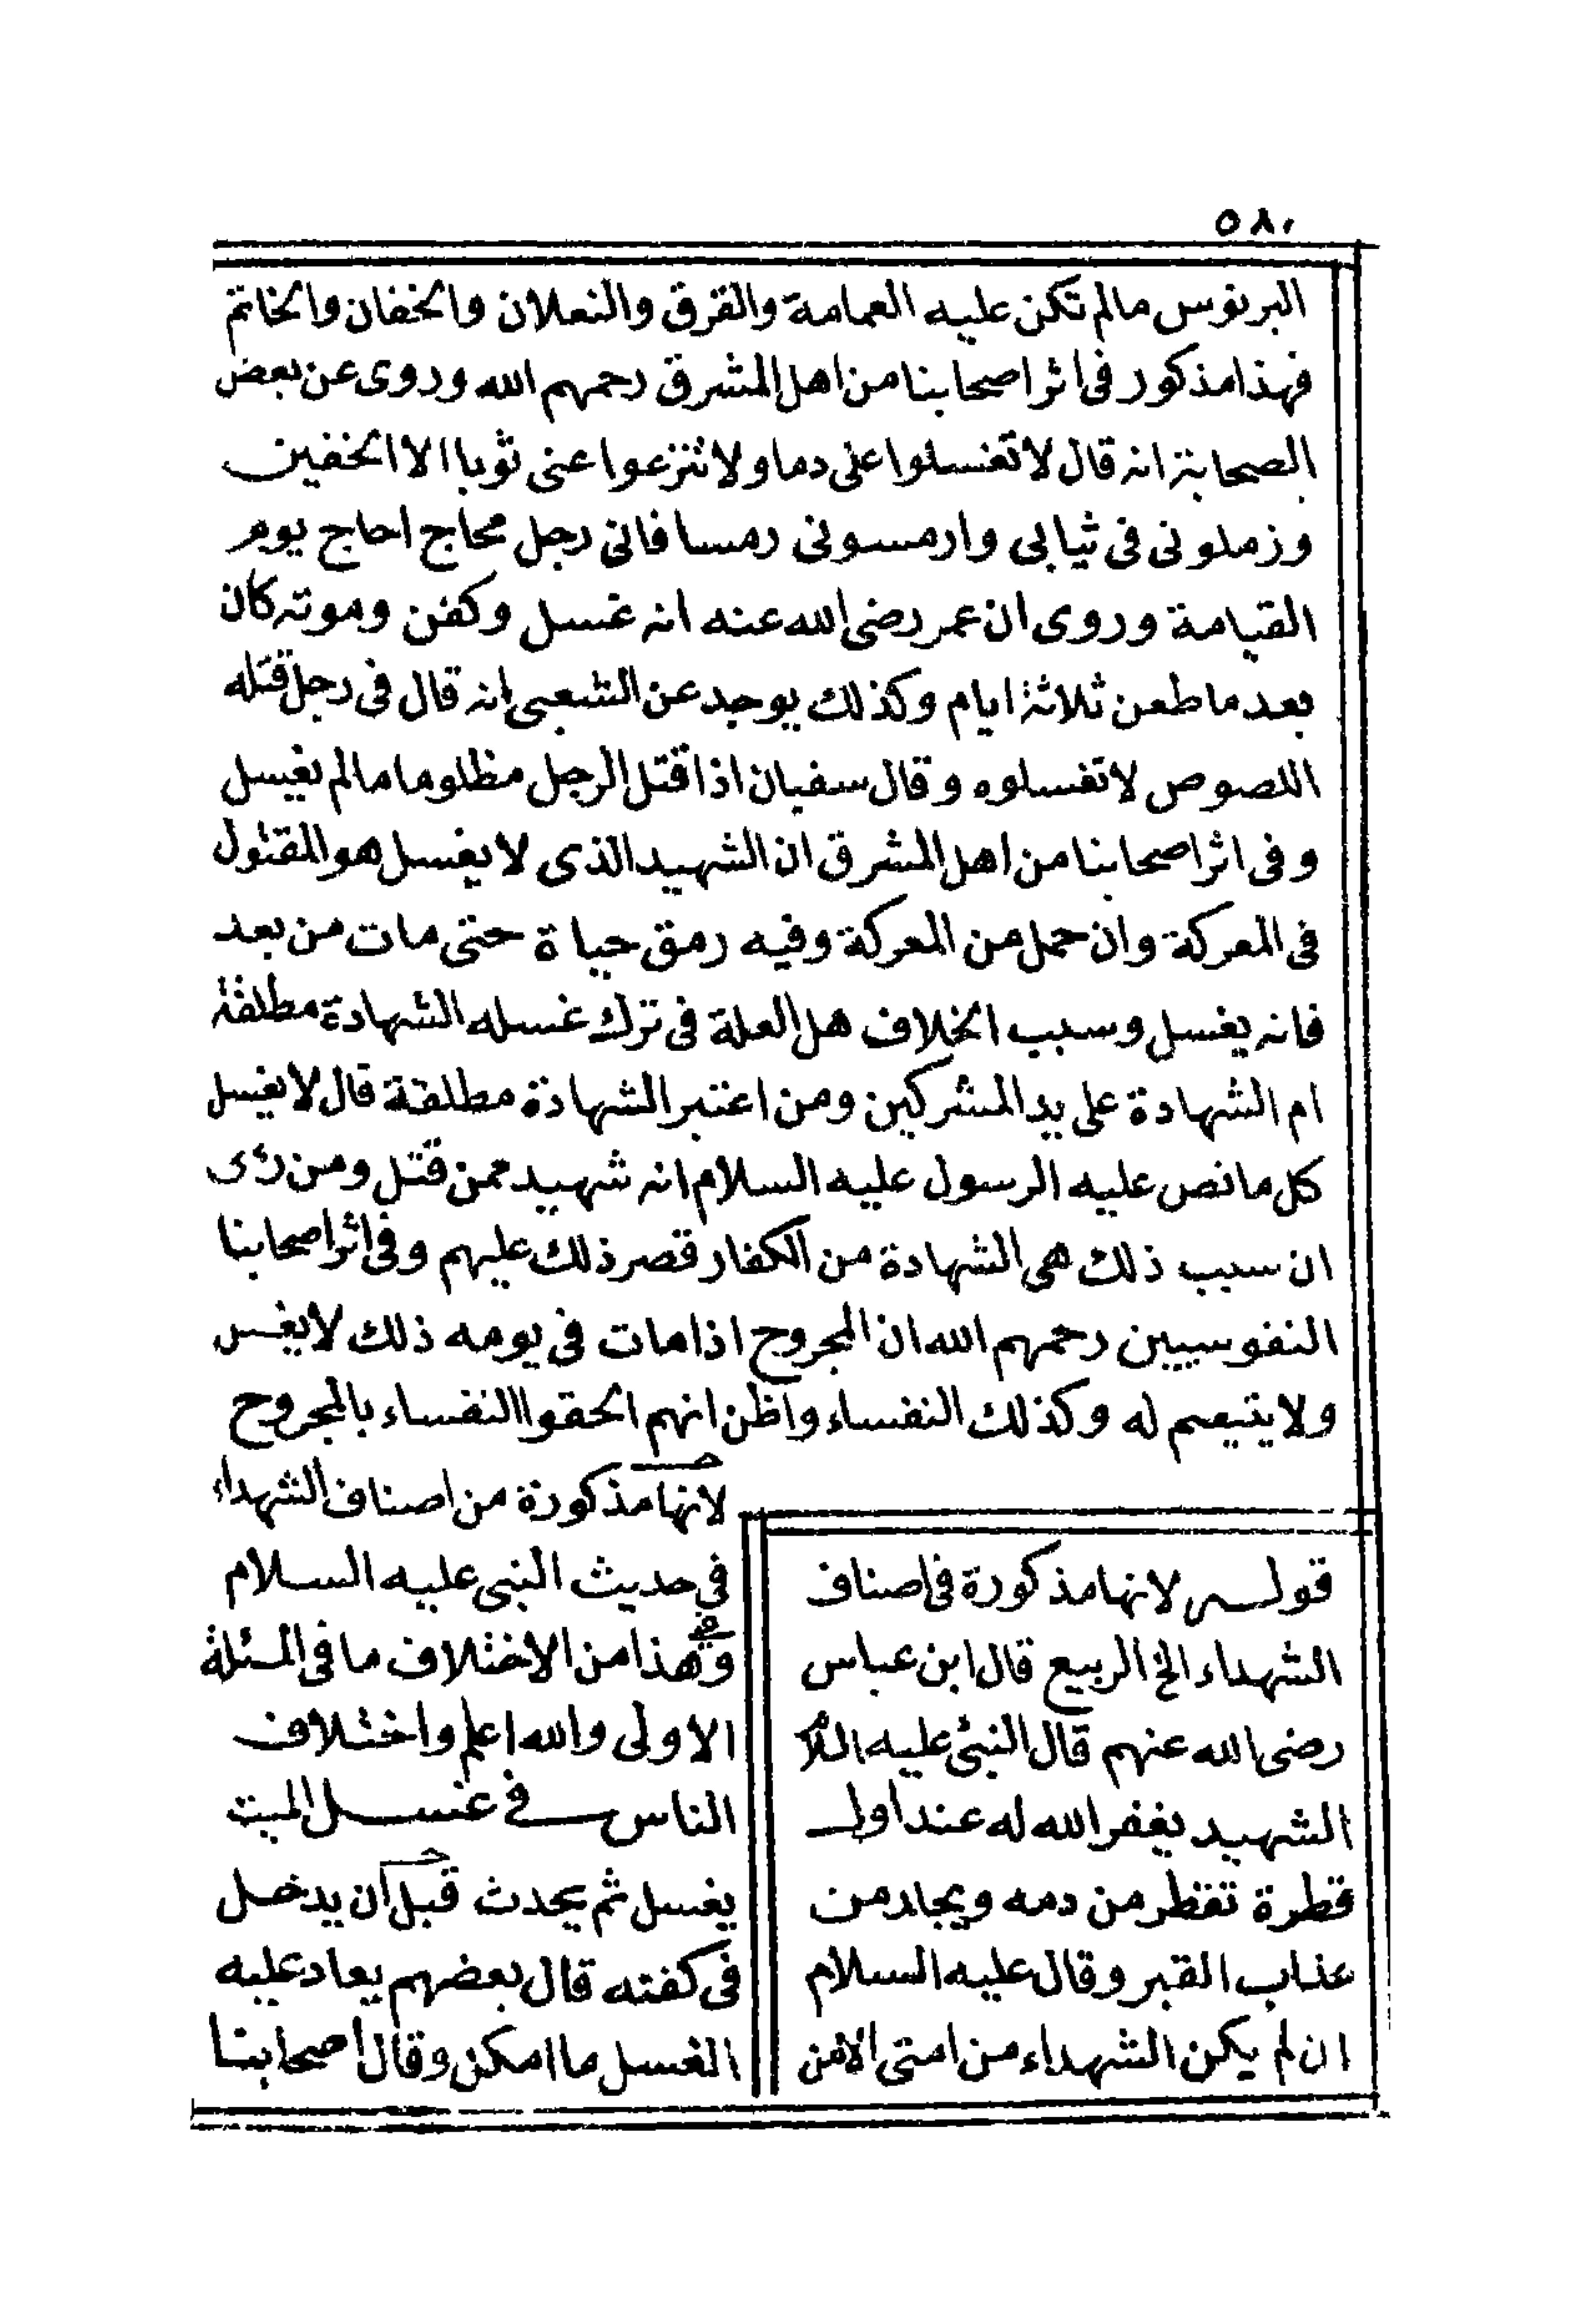 ٥٨٠
البرنوس مالم تكن عليه العمامة والقرق والنعلان والخفان والخاتم
فهذا مذكور فى اثر اصحابنا من اهل المشرق رحمهم الله وروى عن بعض
الصحابة انه قال لا تغسلوا على دما ولا تنزعوا عنى ثوبا الا الخفين
وزملونى فى ثيابى وارمسونى رمسا فانى رجل محاج احاج يوم
القيامة وروى ان عمر رضى الله عنه انه غسل وكفن وموته كان
بعد ما طعن ثلاثة ايام وكذلك يوجد عن الشعبى انه قال فى رجل قتله
اللصوص لا تغسلوه وقال سفيان اذا قتل الرجل مظلوما مالم يغسل
وفى اثر اصحابنا من اهل المشرق ان الشهيد الذى لا يغسل هو المقتول
فى المعركة وان حمل من المعركة وفيه رمق حياة حتى مات من بعد
فانه يغسل وسبب الخلاف هل العلة فى ترك غسله الشهادة مطلقة
ام الشهادة على يد المشركين ومن اعتبر الشهادة مطلقة قال لا يغسل
كل ما نص عليه الرسول عليه السلام انه شهيد ممن قتل ومن رئى
ان سبب ذلك هى الشهادة من الكفار قصر ذلك عليهم وفى اثر اصحابنا
النفوسيين رحمهم الله ان المجروح اذا مات فى يومه ذلك لا يغسل
ولا يتيمم له وكذلك النفساء واظن انهم الحقوا النفساء بالمجروح
لانها مذكورة من اصناف الشهداء
فى حديث النبى عليه السلام
وهذا من الاختلاف ما فى المسئلة
الاولى والله اعلم واختلاف
الناس فى غسل الميت
يغسل ثم يحدث قبل ان يدخل
فى كفنه قال بعضهم يعاد عليه
الغسل ما امكن وقال اصحابنا
قوله لانها مذكورة فى اصناف
الشهداء الخ الربيع قال ابن عباس
رضى الله عنهم قال النبئ عليه السلام
الشهيد يغفر الله له عند اول
قطرة تقطر من دمه ويجار من
عذاب القبر وقال عليه السلام
ان لم يكن الشهداء من امتى الا من